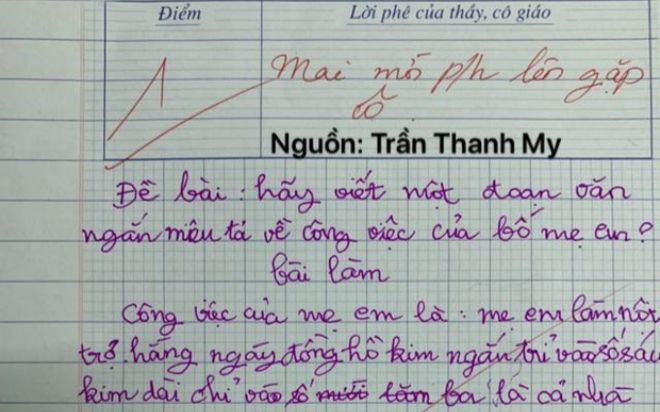 Điểm
Lời phê của thầy, cô giáo
1
Mai mời p/h lên gặp
cô
Nguồn: Trần Thanh My
Đề bài: hãy viết một đoạn văn
ngắn miêu tả về công việc của bố mẹ em?
bài làm
Công việc của mẹ em là: mẹ em làm nội
trợ. hằng ngày đồng hồ kim ngắn trỉ vào số sáu
kim dài chỉ vào số mười lăm ba là cả nhà